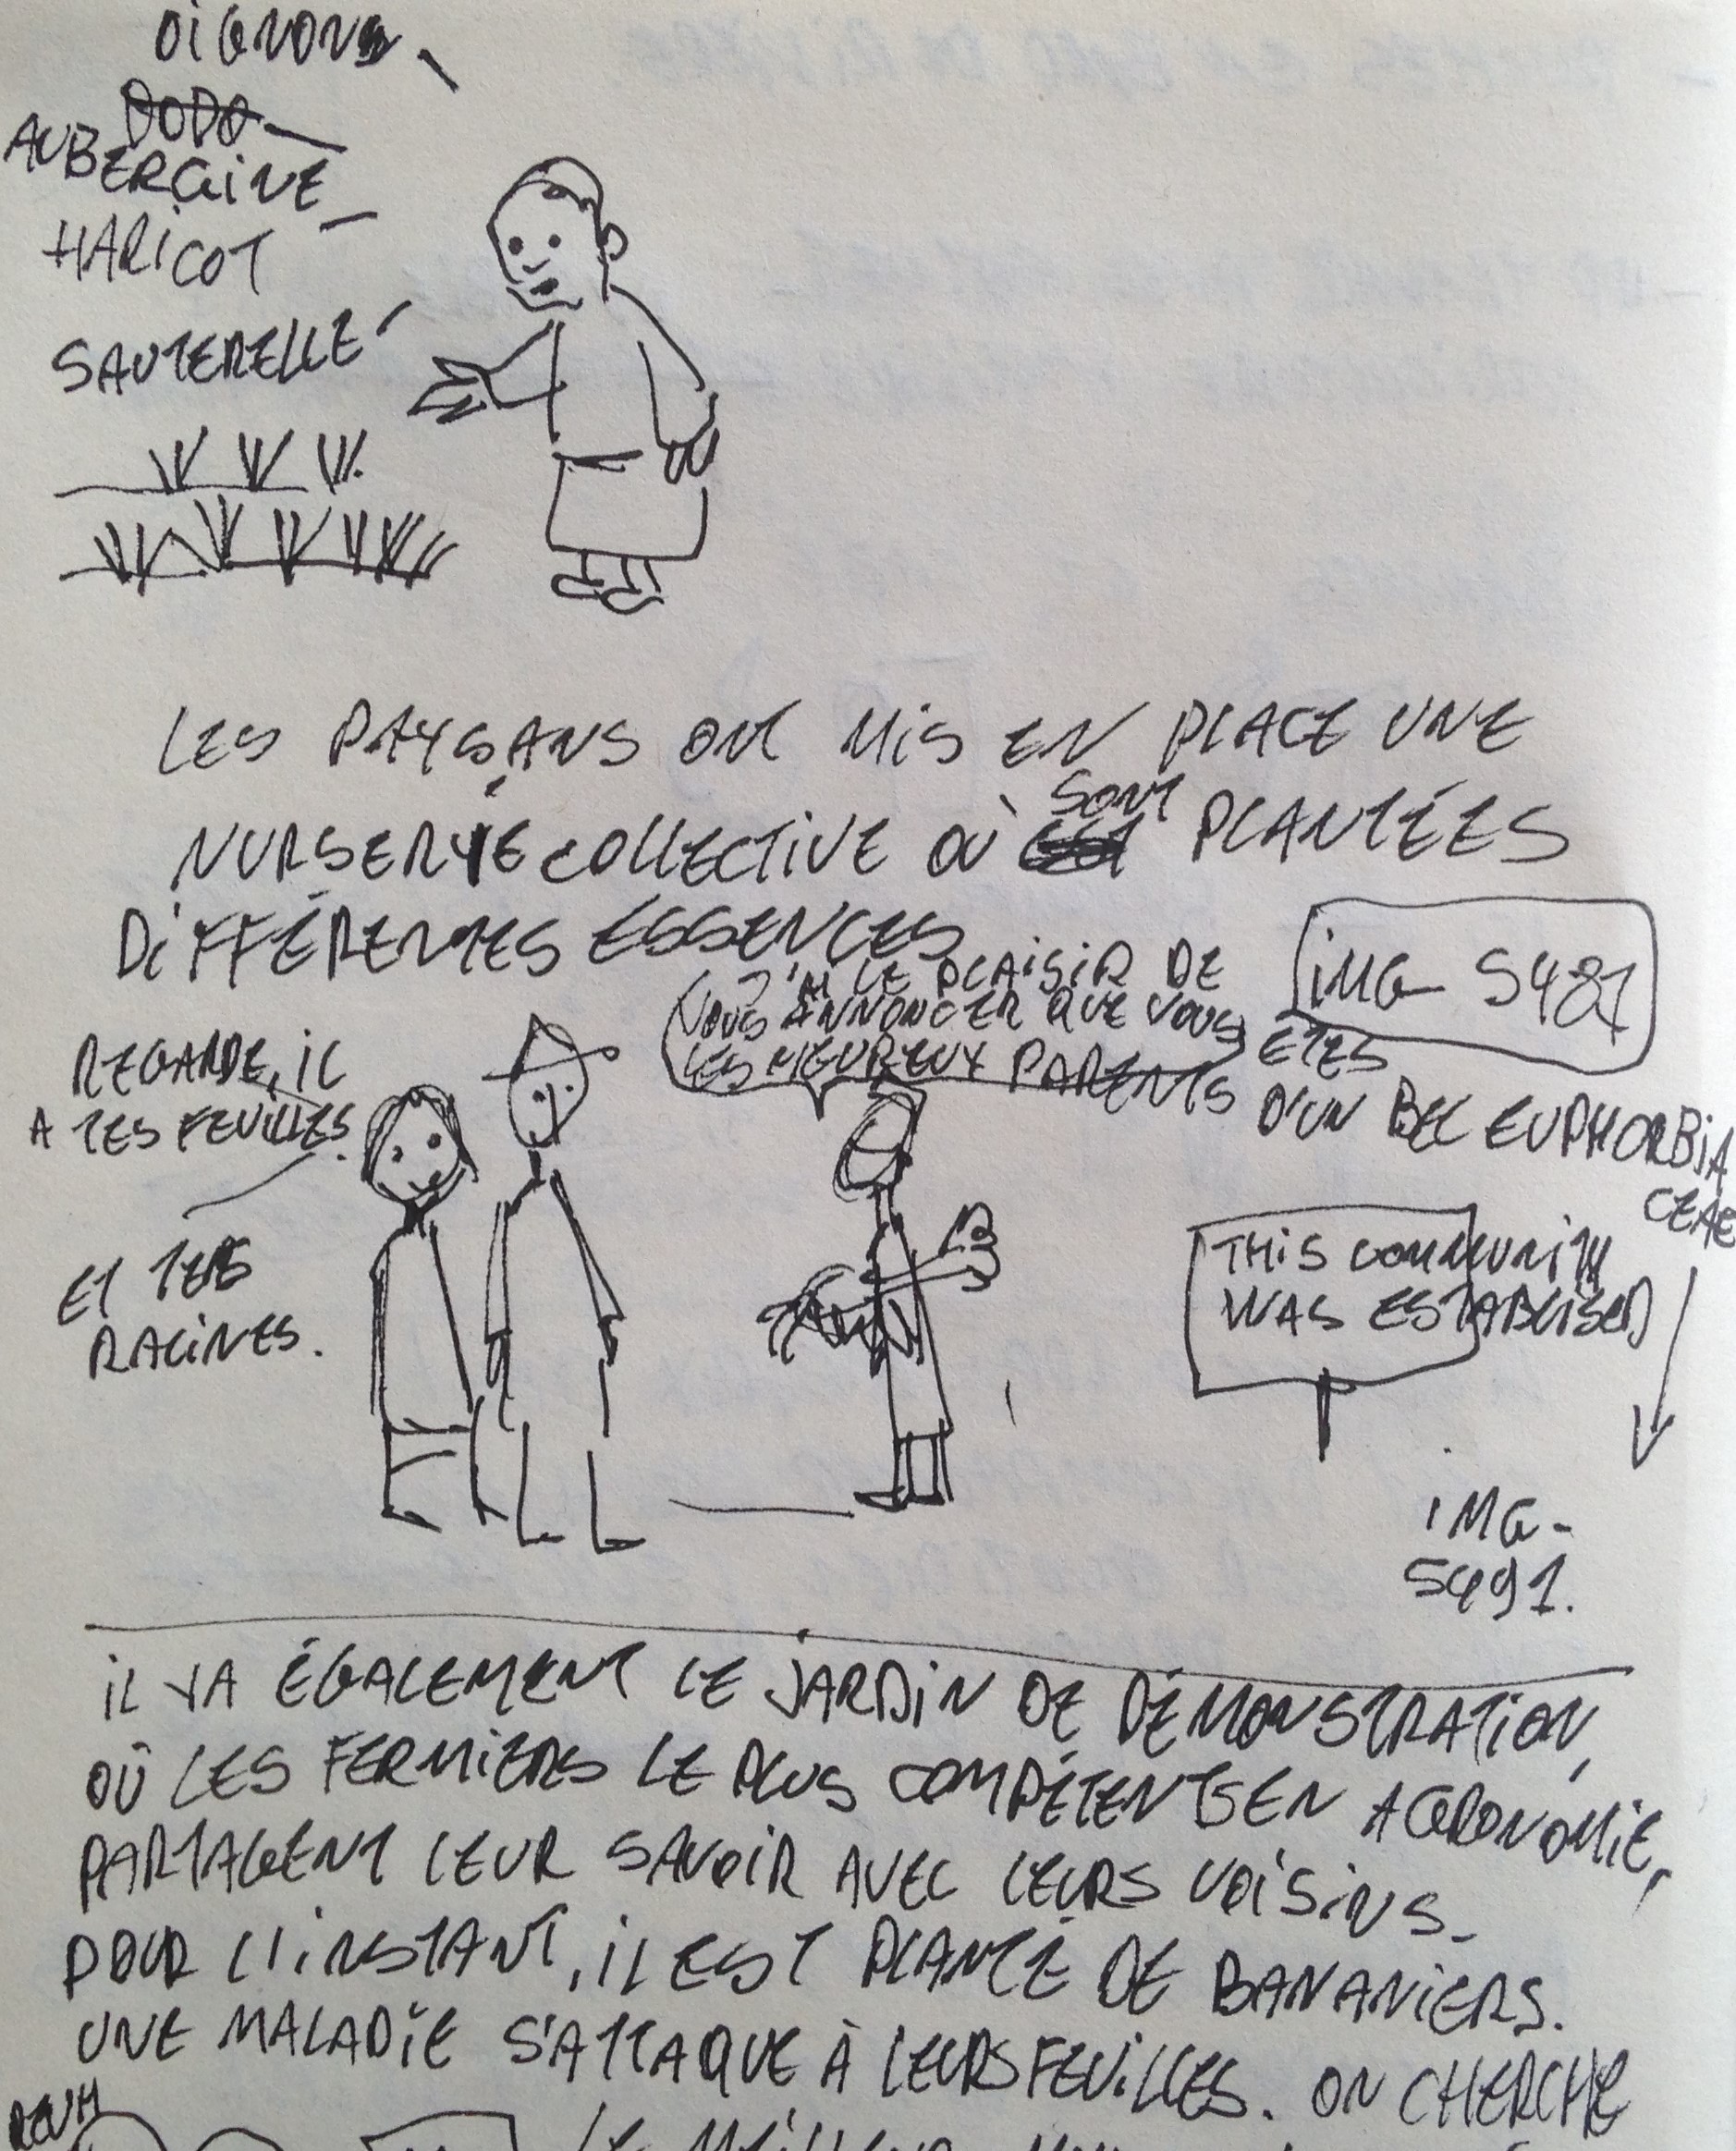 OIGNONS
DODO
AUBERGINE
HARICOT
SAUTERELLE
LES PAYSANS ONT MIS EN PLACE UNE
SONT
NURSERYE COLLECTIVE OÙ EST PLANTÉES
DIFFÉRENTES ESSENCES
J'AI LE PLAISIR DE
VOUS ANNONCER QUE VOUS
LES HEUREUX PARENTS
ÊTES
D'UN BEL EUPHORBIA
CEAE
IMG_5481
REGARDE, IL
A TES FEUILLES.
ET TES
RACINES.
THIS COMMUNITY
WAS ESTABLISED
IMG-
5491.
IL YA ÉGALEMENT LE JARDIN DE DÉMONSTRATION,
OÙ LES FERMIERS LE PLUS COMPÉTENTS EN AGRONOMIE,
PARTAGENT LEUR SAVOIR AVEC LEURS VOISINS_
POUR L'INSTANT, IL EST PLANTÉ DE BANANIERS.
UNE MALADIE S'ATTAQUE À LEURS FEUILLES. ON CHERCHE
LE MEILLEUR